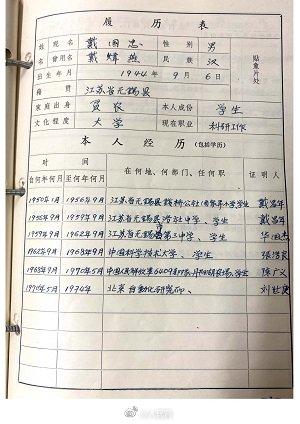 履历表
姓 现名 戴国忠 性别 男
名 曾用名 戴 民族 汉
出生年月 1944年9月6日
籍贯 江苏省无锡县
家庭出身 贫农 本人成份 学生
文化程度 大学 现在职业 科研工作
贴照片处
本人经历（包括学历）
时间 在何地、何部门、任何职 证明人
自何年何月 至何年何月
1950年1月 1956年9月 江苏省无锡县 公社 小学学生 戴
1956年9月 1959年9月 江苏省无锡县 中学、学生 戴
1959年9月 1962年9月 江苏省无锡 第三中学、学生 华
1962年9月 1968年9月 中国科学技术大学、学生 张
1968年9月 1970年5月 中国人民解放军6409 农场、学生 陈广义
1970年5月 1974年 北京自动化研究所、 刘